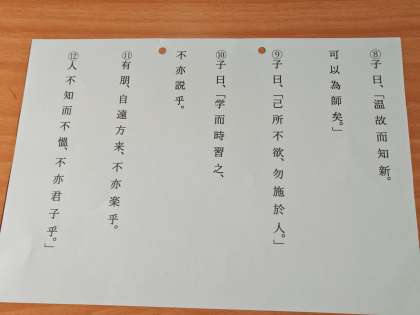 ⑧子曰、「温故而知新。
可以為師矣。」
⑨子曰、「己所不欲、勿施於人。」
⑩子曰、「学而時習之、
不亦説乎。
⑪有朋、自遠方来、不亦楽乎。
⑫人不知而不慍、不亦君子乎。」